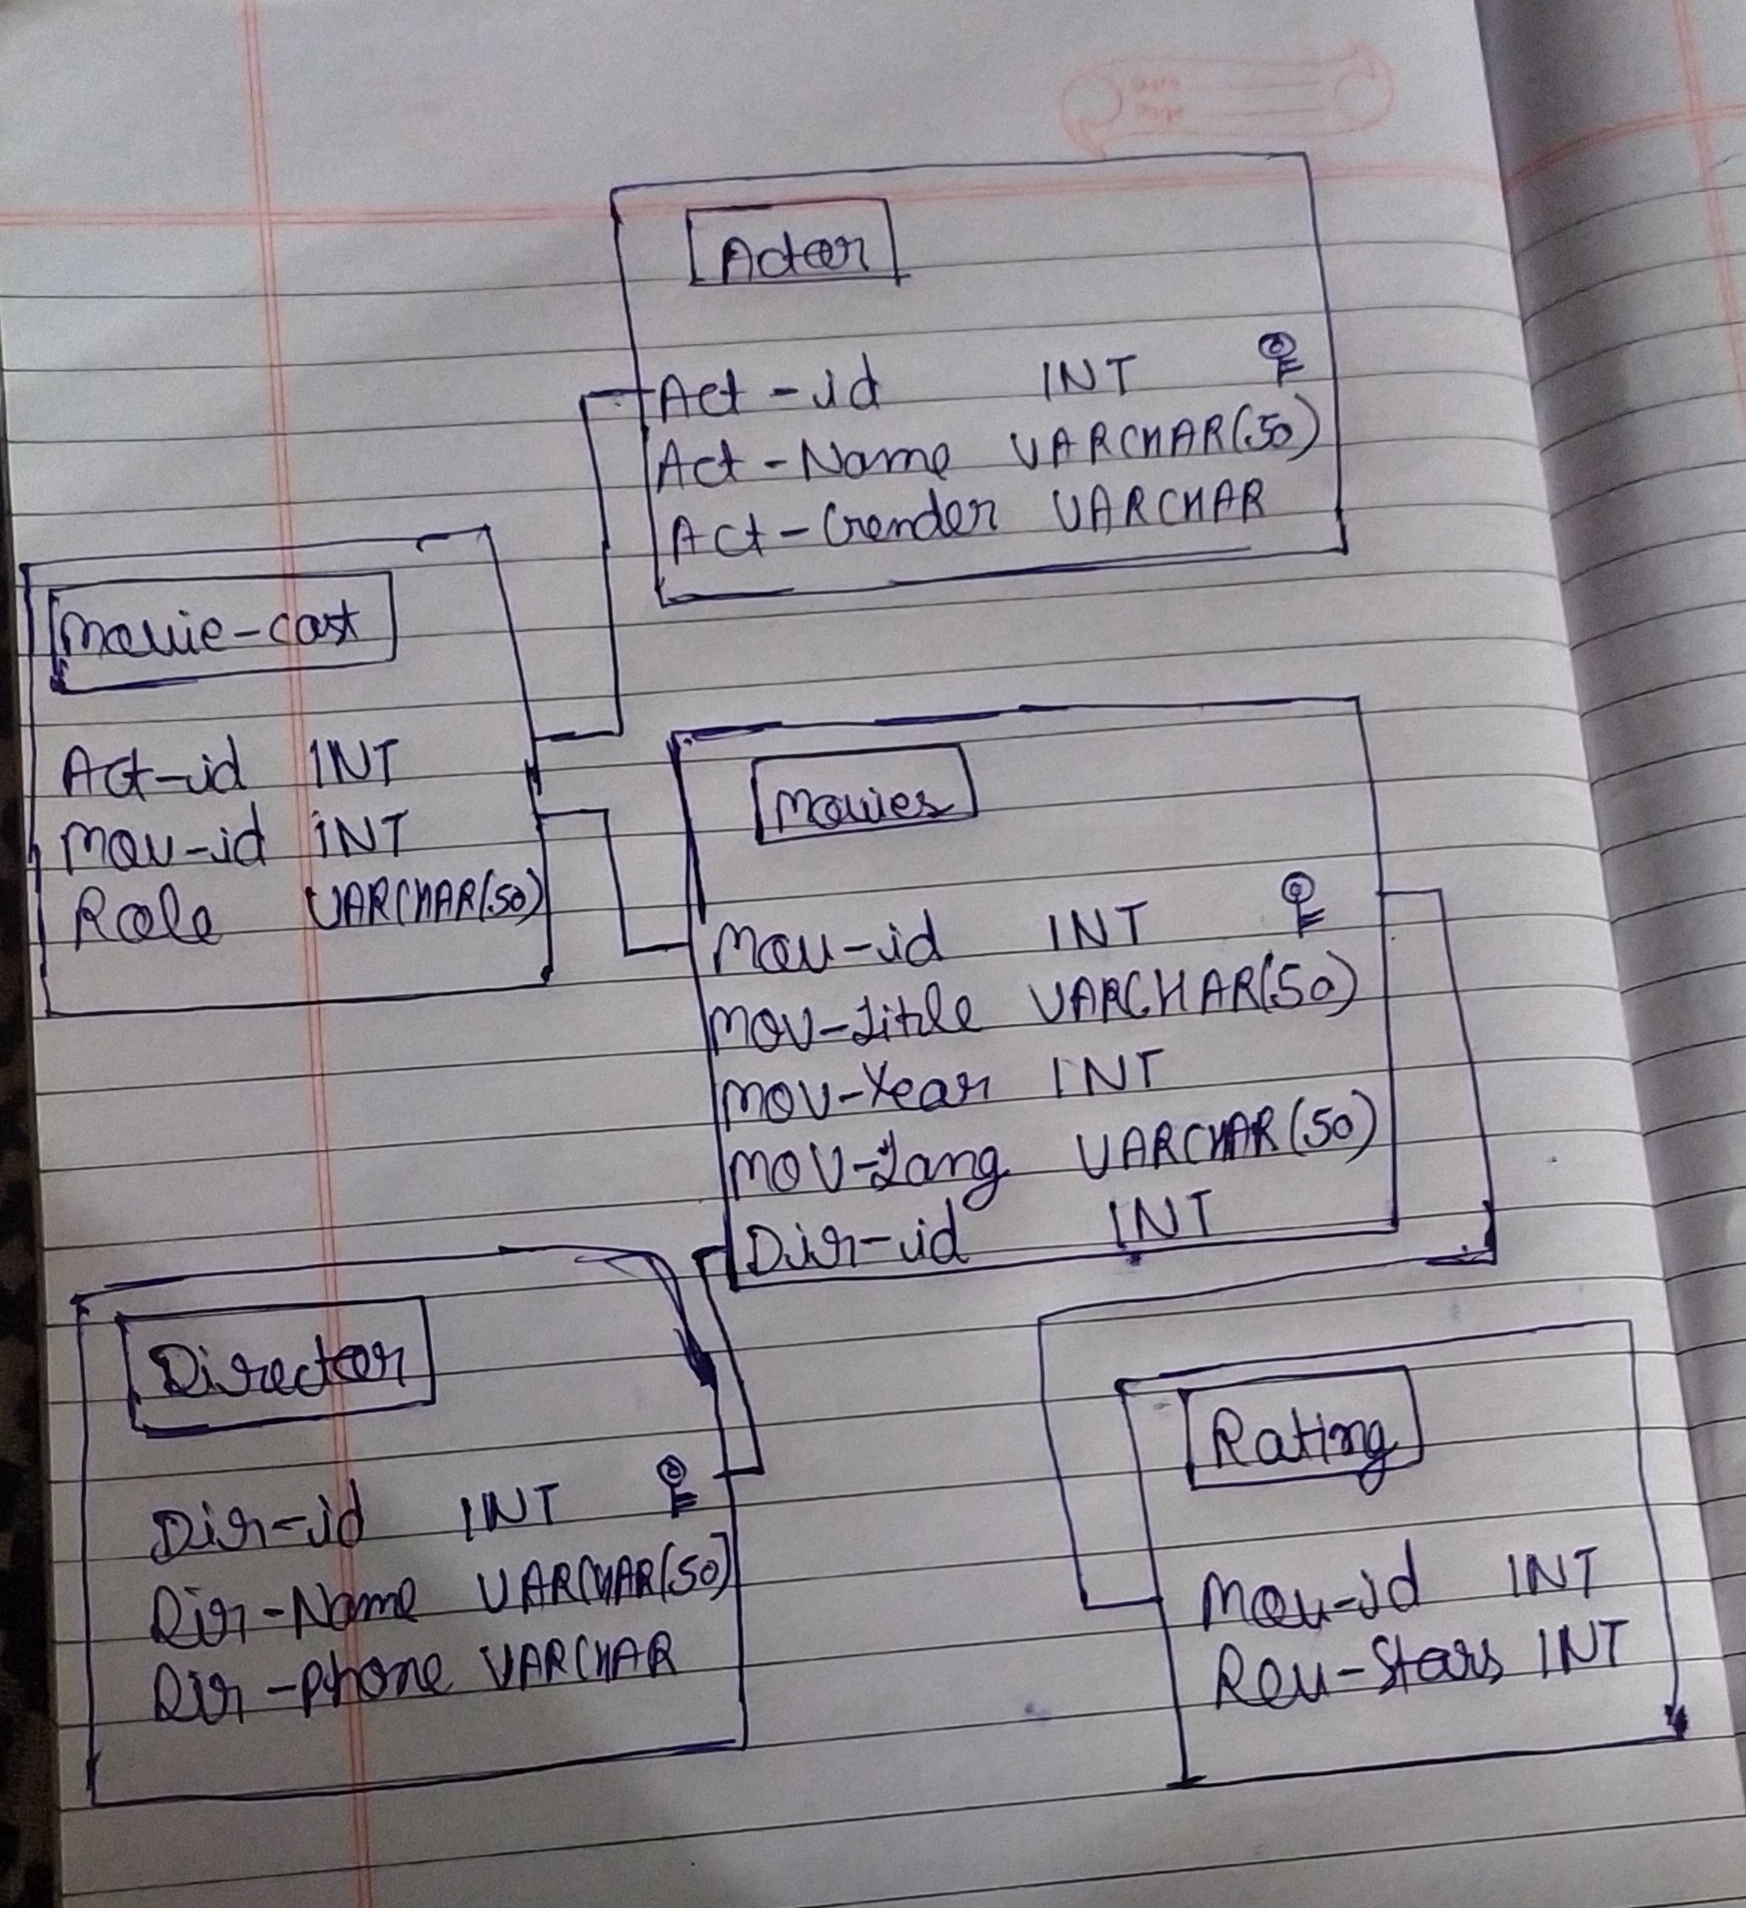 Date
Page
Actor
Act-id INT
Act-Name VARCHAR(50)
Act-Gender VARCHAR
Movie-cast
Act-id INT
Mov-id INT
Role VARCHAR(50)
Movies
Mov-id INT
Mov-Title VARCHAR(50)
Mov-Year INT
Mov-Lang VARCHAR(50)
Dir-id INT
Director
Dir-id INT
Dir-Name VARCHAR(50)
Dir-phone VARCHAR
Rating
Mov-id INT
Rev-Stars INT